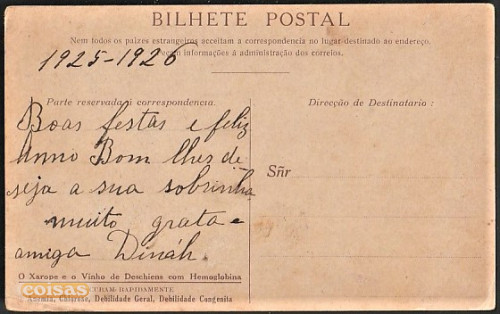 BILHETE POSTAL
Nem todos os paizes estrangeiros acceitam a correspondencia no logar destinado ao endereço.
Pedem informações á administração dos correios.
1925-1926
Parte reservada á correspondencia.
Direcção de Destinatario :
Boas festas e feliz
Anno Bom lhes de-
seja a sua sobrinha
Sñr
muito grata e
amiga Dináh.
O Xarope e o Vinho de Deschiens com Hemoglobina
CURAM RAPIDAMENTE
Anemia, Chlorose, Debilidade Geral, Debilidade Congenita
coisas